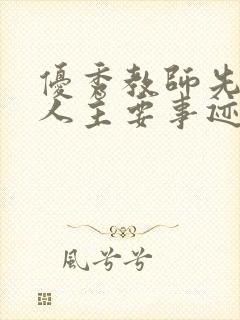 優秀教師先
人主要事迹
風兮兮